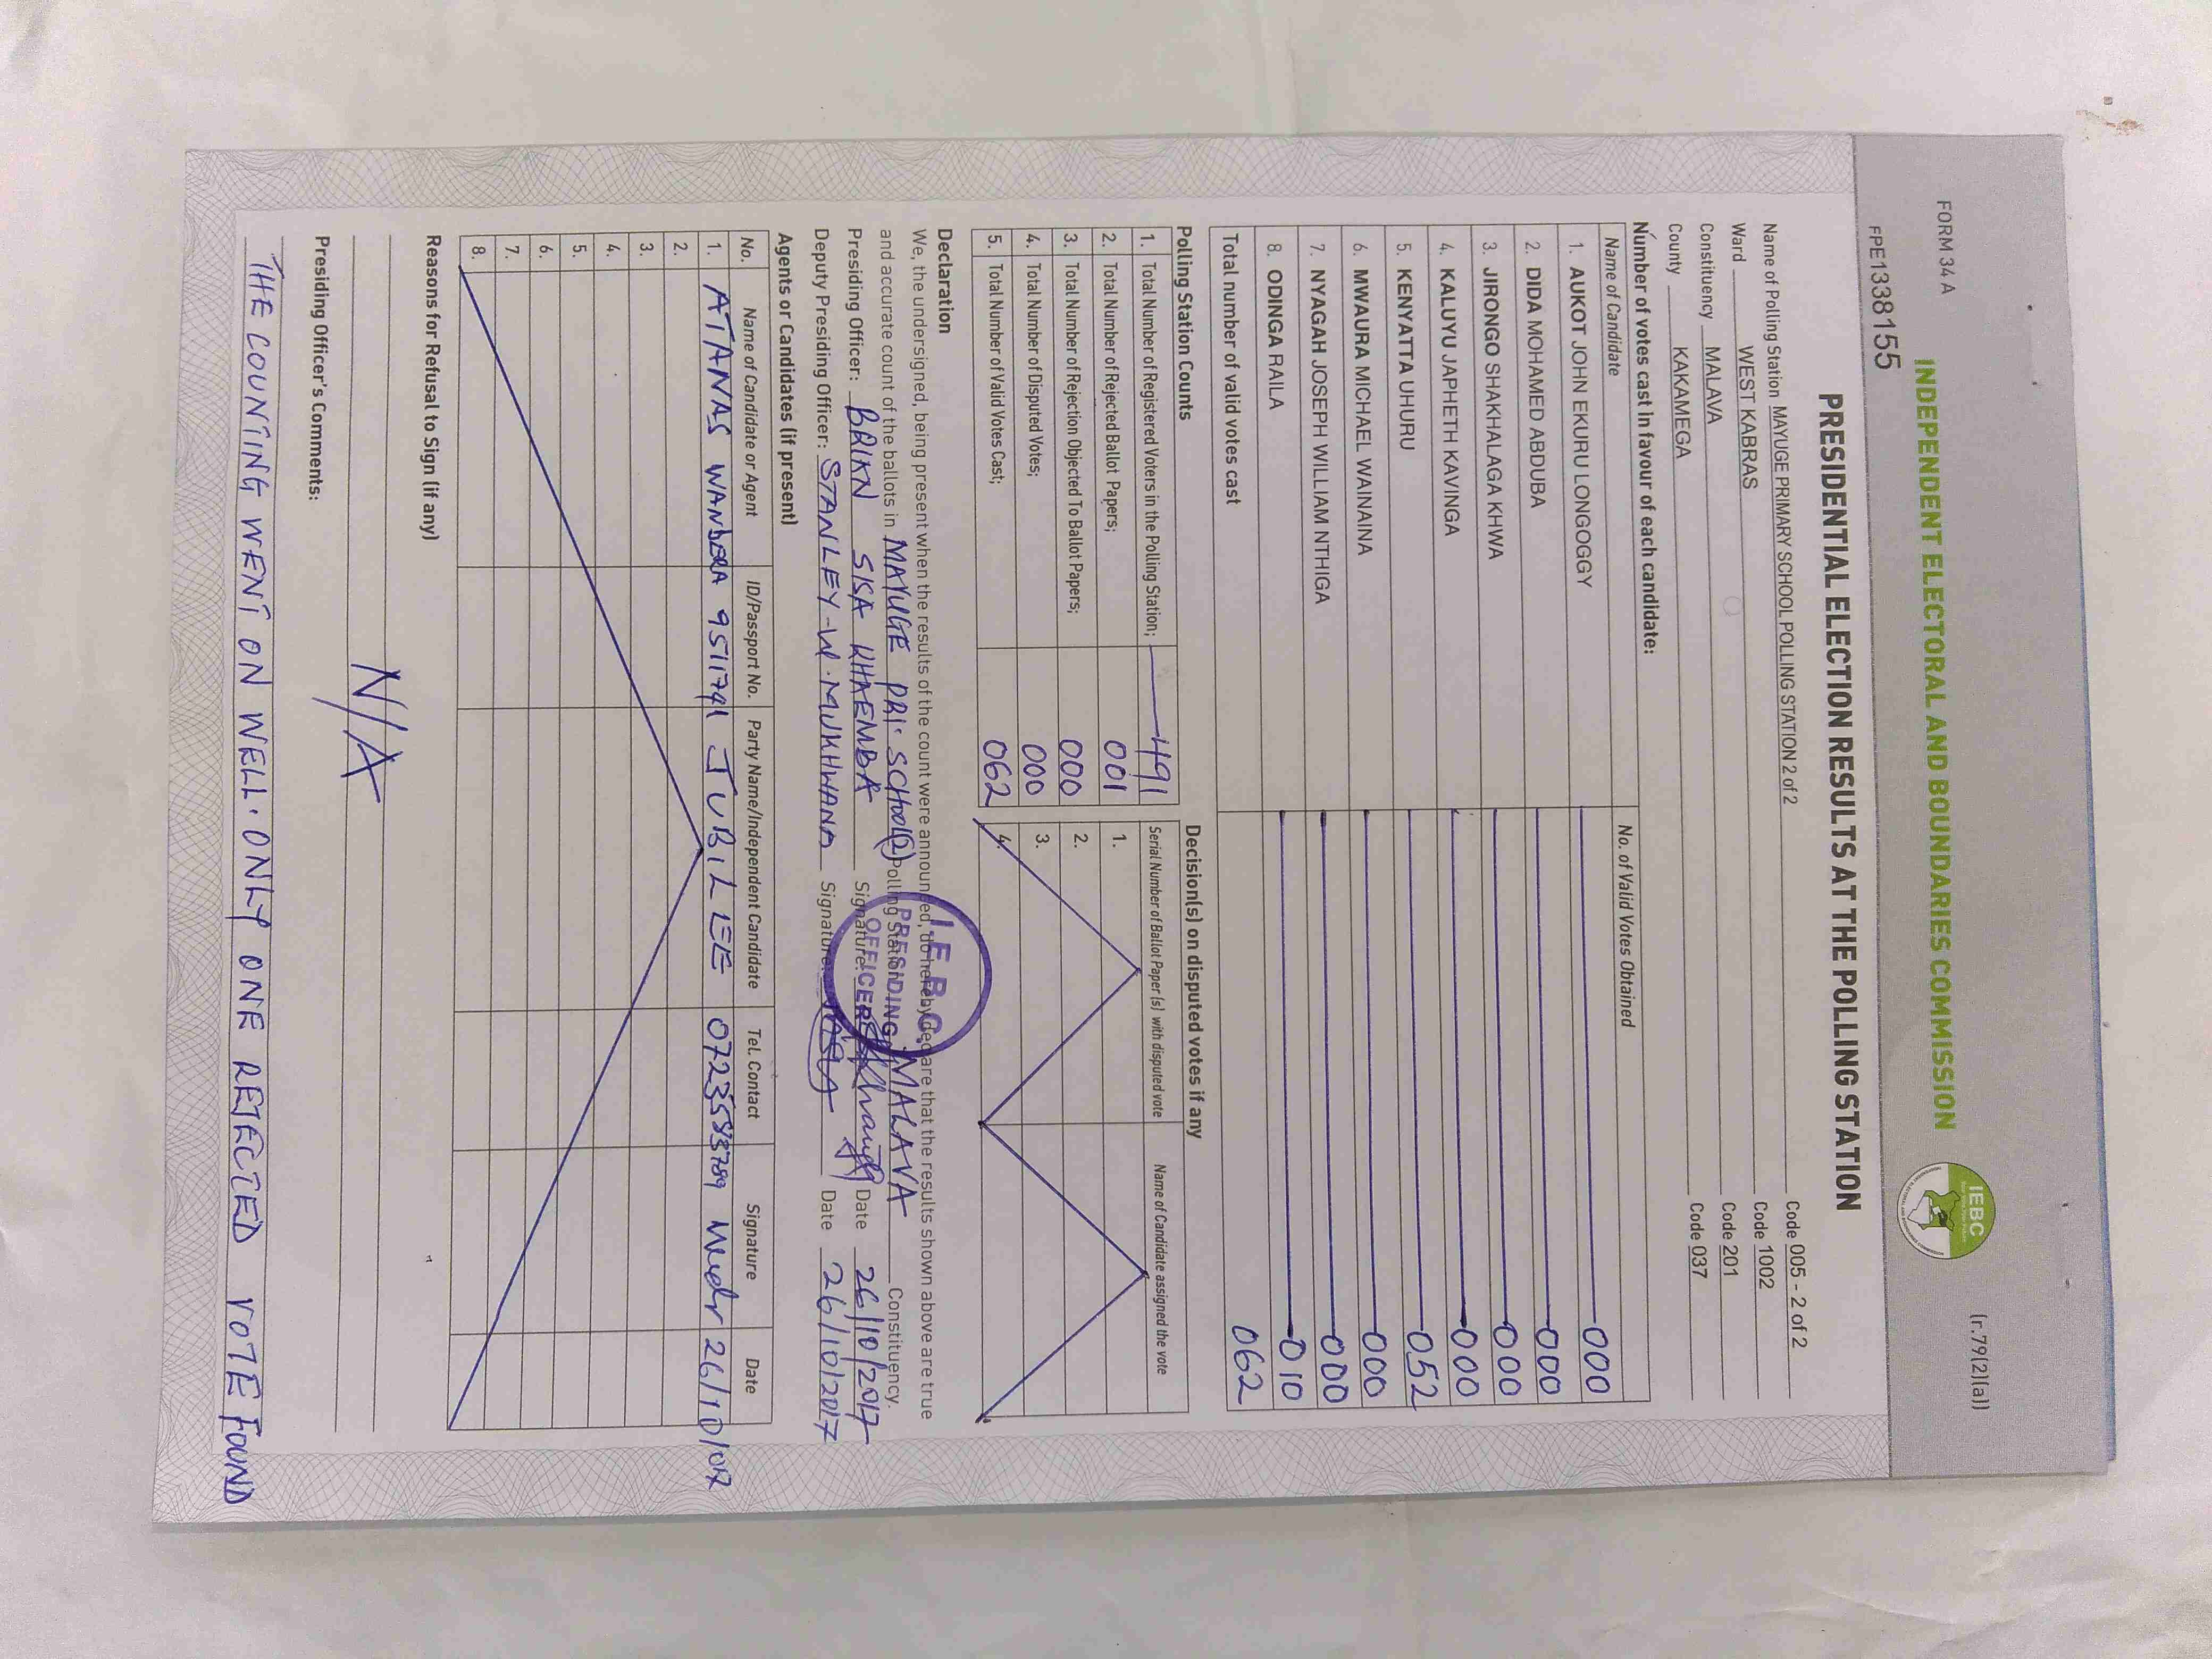 FORM 34 A
(r.79(2)(a))
INDEPENDENT ELECTORAL AND BOUNDARIES COMMISSION
IEBC
FPE1338155
PRESIDENTIAL ELECTION RESULTS AT THE POLLING STATION
Name of Polling Station MAYUGE PRIMARY SCHOOL POLLING STATION 2 of 2 Code 005 - 2 of 2
Ward WEST KABRAS Code 1002
Constituency MALAVA Code 201
County KAKAMEGA Code 037
Number of votes cast in favour of each candidate:
Name of Candidate No. of Valid Votes Obtained
1. AUKOT JOHN EKURU LONGOGGY 000
2. DIDA MOHAMED ABDUBA 000
3. JIRONGO SHAKHALAGA KHWA 000
4. KALUYU JAPHETH KAVINGA 000
5. KENYATTA UHURU 052
6. MWAURA MICHAEL WAINAINA 000
7. NYAGAH JOSEPH WILLIAM NTHIGA 000
8. ODINGA RAILA 010
Total number of valid votes cast 062
Polling Station Counts
1. Total Number of Registered Voters in the Polling Station; 491
2. Total Number of Rejected Ballot Papers; 001
3. Total Number of Rejection Objected To Ballot Papers; 000
4. Total Number of Disputed Votes; 000
5. Total Number of Valid Votes Cast; 062
Decision(s) on disputed votes if any
Serial Number of Ballot Paper (s) with disputed vote Name of Candidate assigned the vote
1.
2.
3.
4.
Declaration
We, the undersigned, being present when the results of the count were announced, do hereby declare that the results shown above are true
and accurate count of the ballots in MAYUGE PRI. SCHOOL (2) Polling Station in MALAVA Constituency.
Presiding Officer: BRIKN SISA KHAEMBA Signature: Date 26/10/2017
Deputy Presiding Officer: STANLEY-W. MUKHWANA Signature: Date 26/10/2017
I.E.B.C.
PRESIDING
OFFICER
Agents or Candidates (if present)
No. Name of Candidate or Agent ID/Passport No. Party Name/Independent Candidate Tel. Contact Signature Date
1. ATANAS WANDERA 9511791 JUBILLEE 0723583789 26/10/017
2.
3.
4.
5.
6.
7.
8.
Reasons for Refusal to Sign (if any)
N/A
Presiding Officer's Comments:
THE COUNTING WENT ON WELL. ONLY ONE REJECTED VOTE FOUND